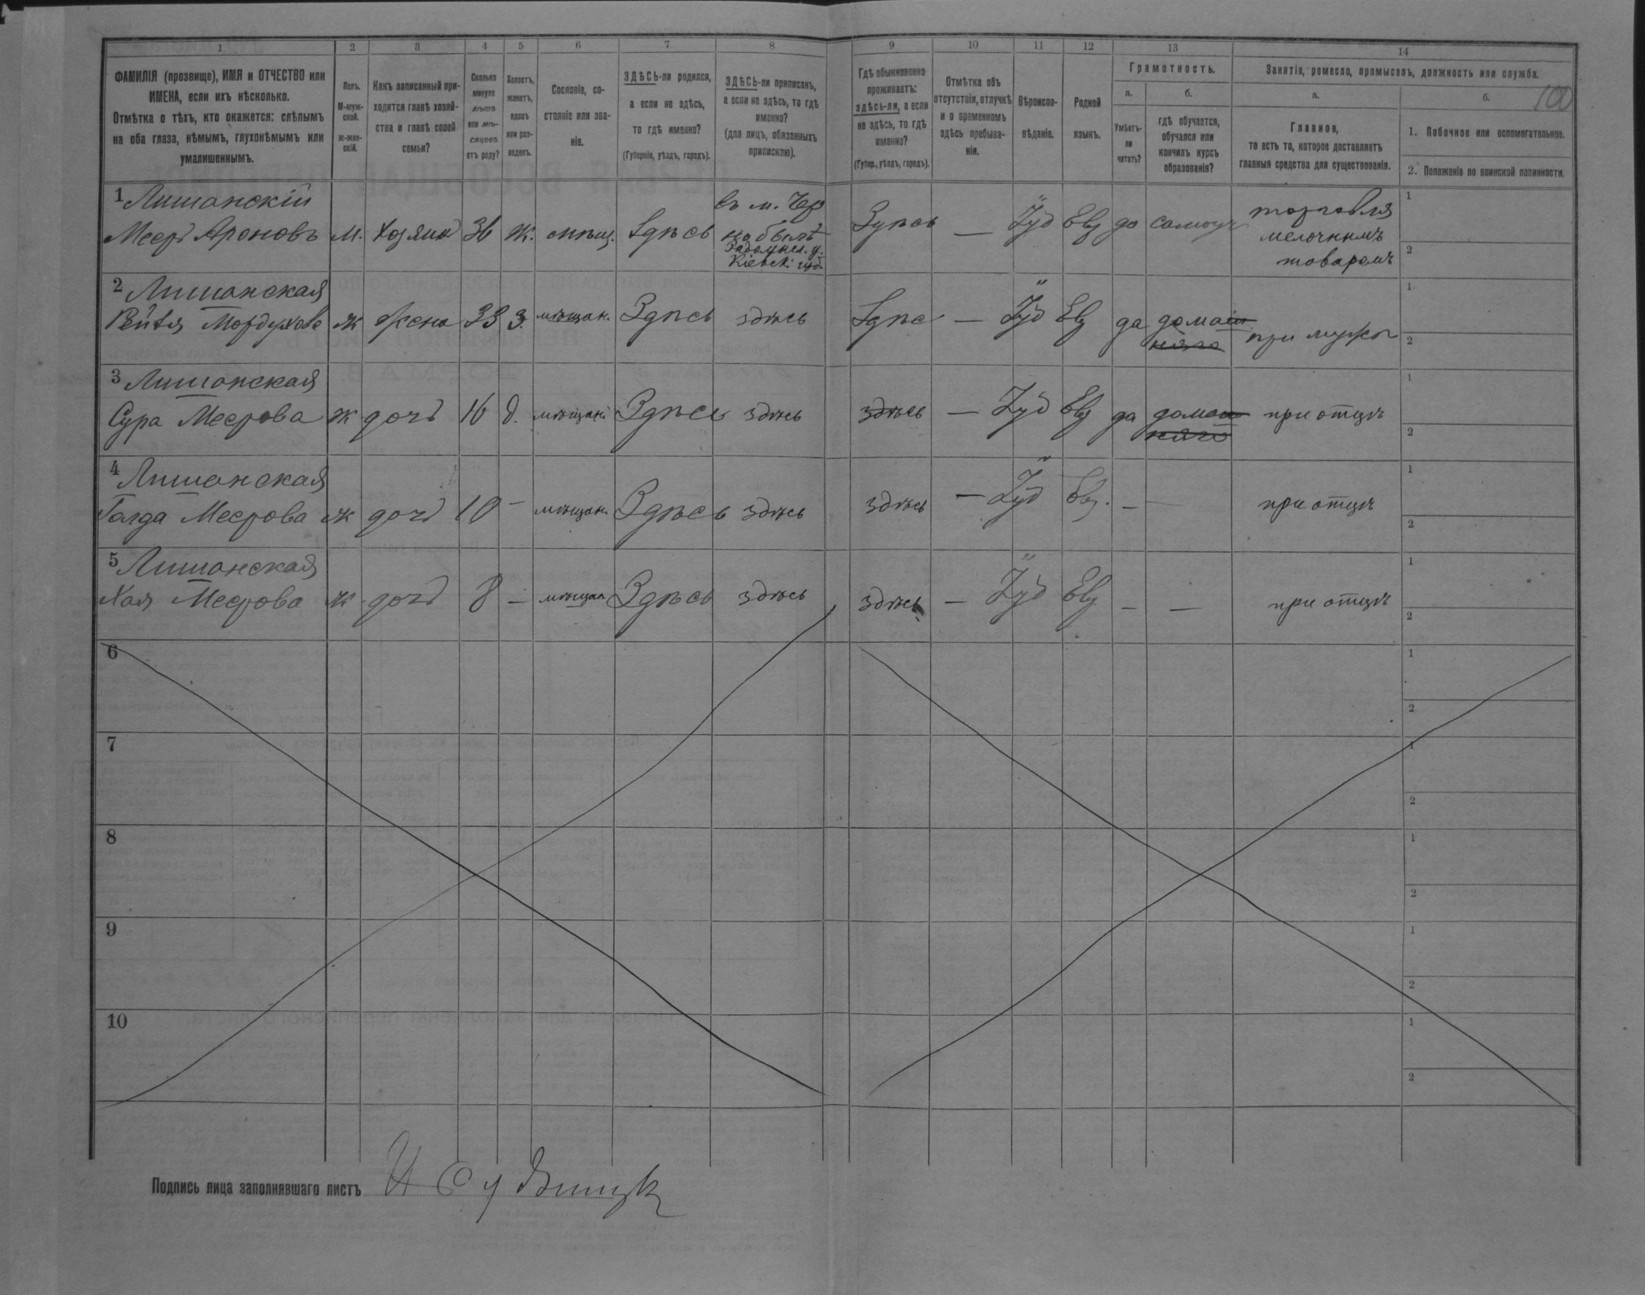 1 2 3 4 5 6 7 8 9 10 11 12 13 14
ФАМИЛІЯ (прозвище), ИМЯ и ОТЧЕСТВО или
ИМЕНА, если ихъ нѣсколько.
Отмѣтка о тѣхъ, кто окажется: слѣпымъ
на оба глаза, нѣмымъ, глухонѣмымъ или
умалишеннымъ.
Полъ.
М-муж-
ской.
Ж-жен-
скій.
Какъ записанный при-
ходится главѣ хозяй-
ства и главѣ своей
семьи?
Сколько
минуло
лѣтъ
или мѣ-
сяцевъ
отъ роду?
Холостъ,
женатъ,
вдовъ
или раз-
веденъ.
Сословіе, со-
стояніе или зва-
ніе.
ЗДѢСЬ-ли родился,
а если не здѣсь,
то гдѣ именно?
(Губернія, уѣздъ, городъ).
ЗДѢСЬ-ли приписанъ,
а если не здѣсь, то гдѣ
именно?
(для лицъ, обязанныхъ
припискою).
Гдѣ обыкновенно
проживаетъ:
здѣсь-ли, а если
не здѣсь, то гдѣ
именно?
(Губер., уѣздъ, городъ).
Отмѣтка объ
отсутствіи, отлучкѣ
и о временномъ
здѣсь пребыва-
ніи.
Вѣроиспо-
вѣданіе.
Родной
языкъ.
Грамотность.
а.
Умѣетъ-
ли
читать?
б.
гдѣ обучается,
обучался или
кончилъ курсъ
образованія?
Занятіе, ремесло, промыселъ, должность или служба.
а.
Главное,
то есть то, которое доставляетъ
главныя средства для существованія.
б.
100
1. Побочное или вспомогательное.
2. Положеніе по воинской повинности.
1 Лишанскій
Меєръ Ароновъ м. хозяинъ 36 ж. мѣщ. Здѣсь
въ м. Чер
Кіевск. губ.
Здѣсь — Іуд Евр да самоуч
торговля
мелочнымъ
товаромъ
1
2
2 Лишанская
Мордухова ж жена 33 З. мѣщан. Здѣсь здѣсь Здѣс — Іуд Евр да домаш
няго
при мужѣ
1
2
3 Лишанская
Сура Меерова ж дочь 16 д. мѣщан Здѣсь здѣсь здѣсь — Іуд Евр да домаш
няго
при отцѣ
1
2
4 Лишанская
Голда Меерова ж дочь 10 — мѣщан. Здѣсь здѣсь здѣсь — Іуд Евр. — — при отцѣ
1
2
5 Лишанская
Хая Меерова ж дочь 8 — мѣщан Здѣсь здѣсь здѣсь — Іуд Евр — — при отцѣ
1
2
6
1
2
7
1
2
8
1
2
9
1
2
10
1
2
Подпись лица заполнявшаго листъ